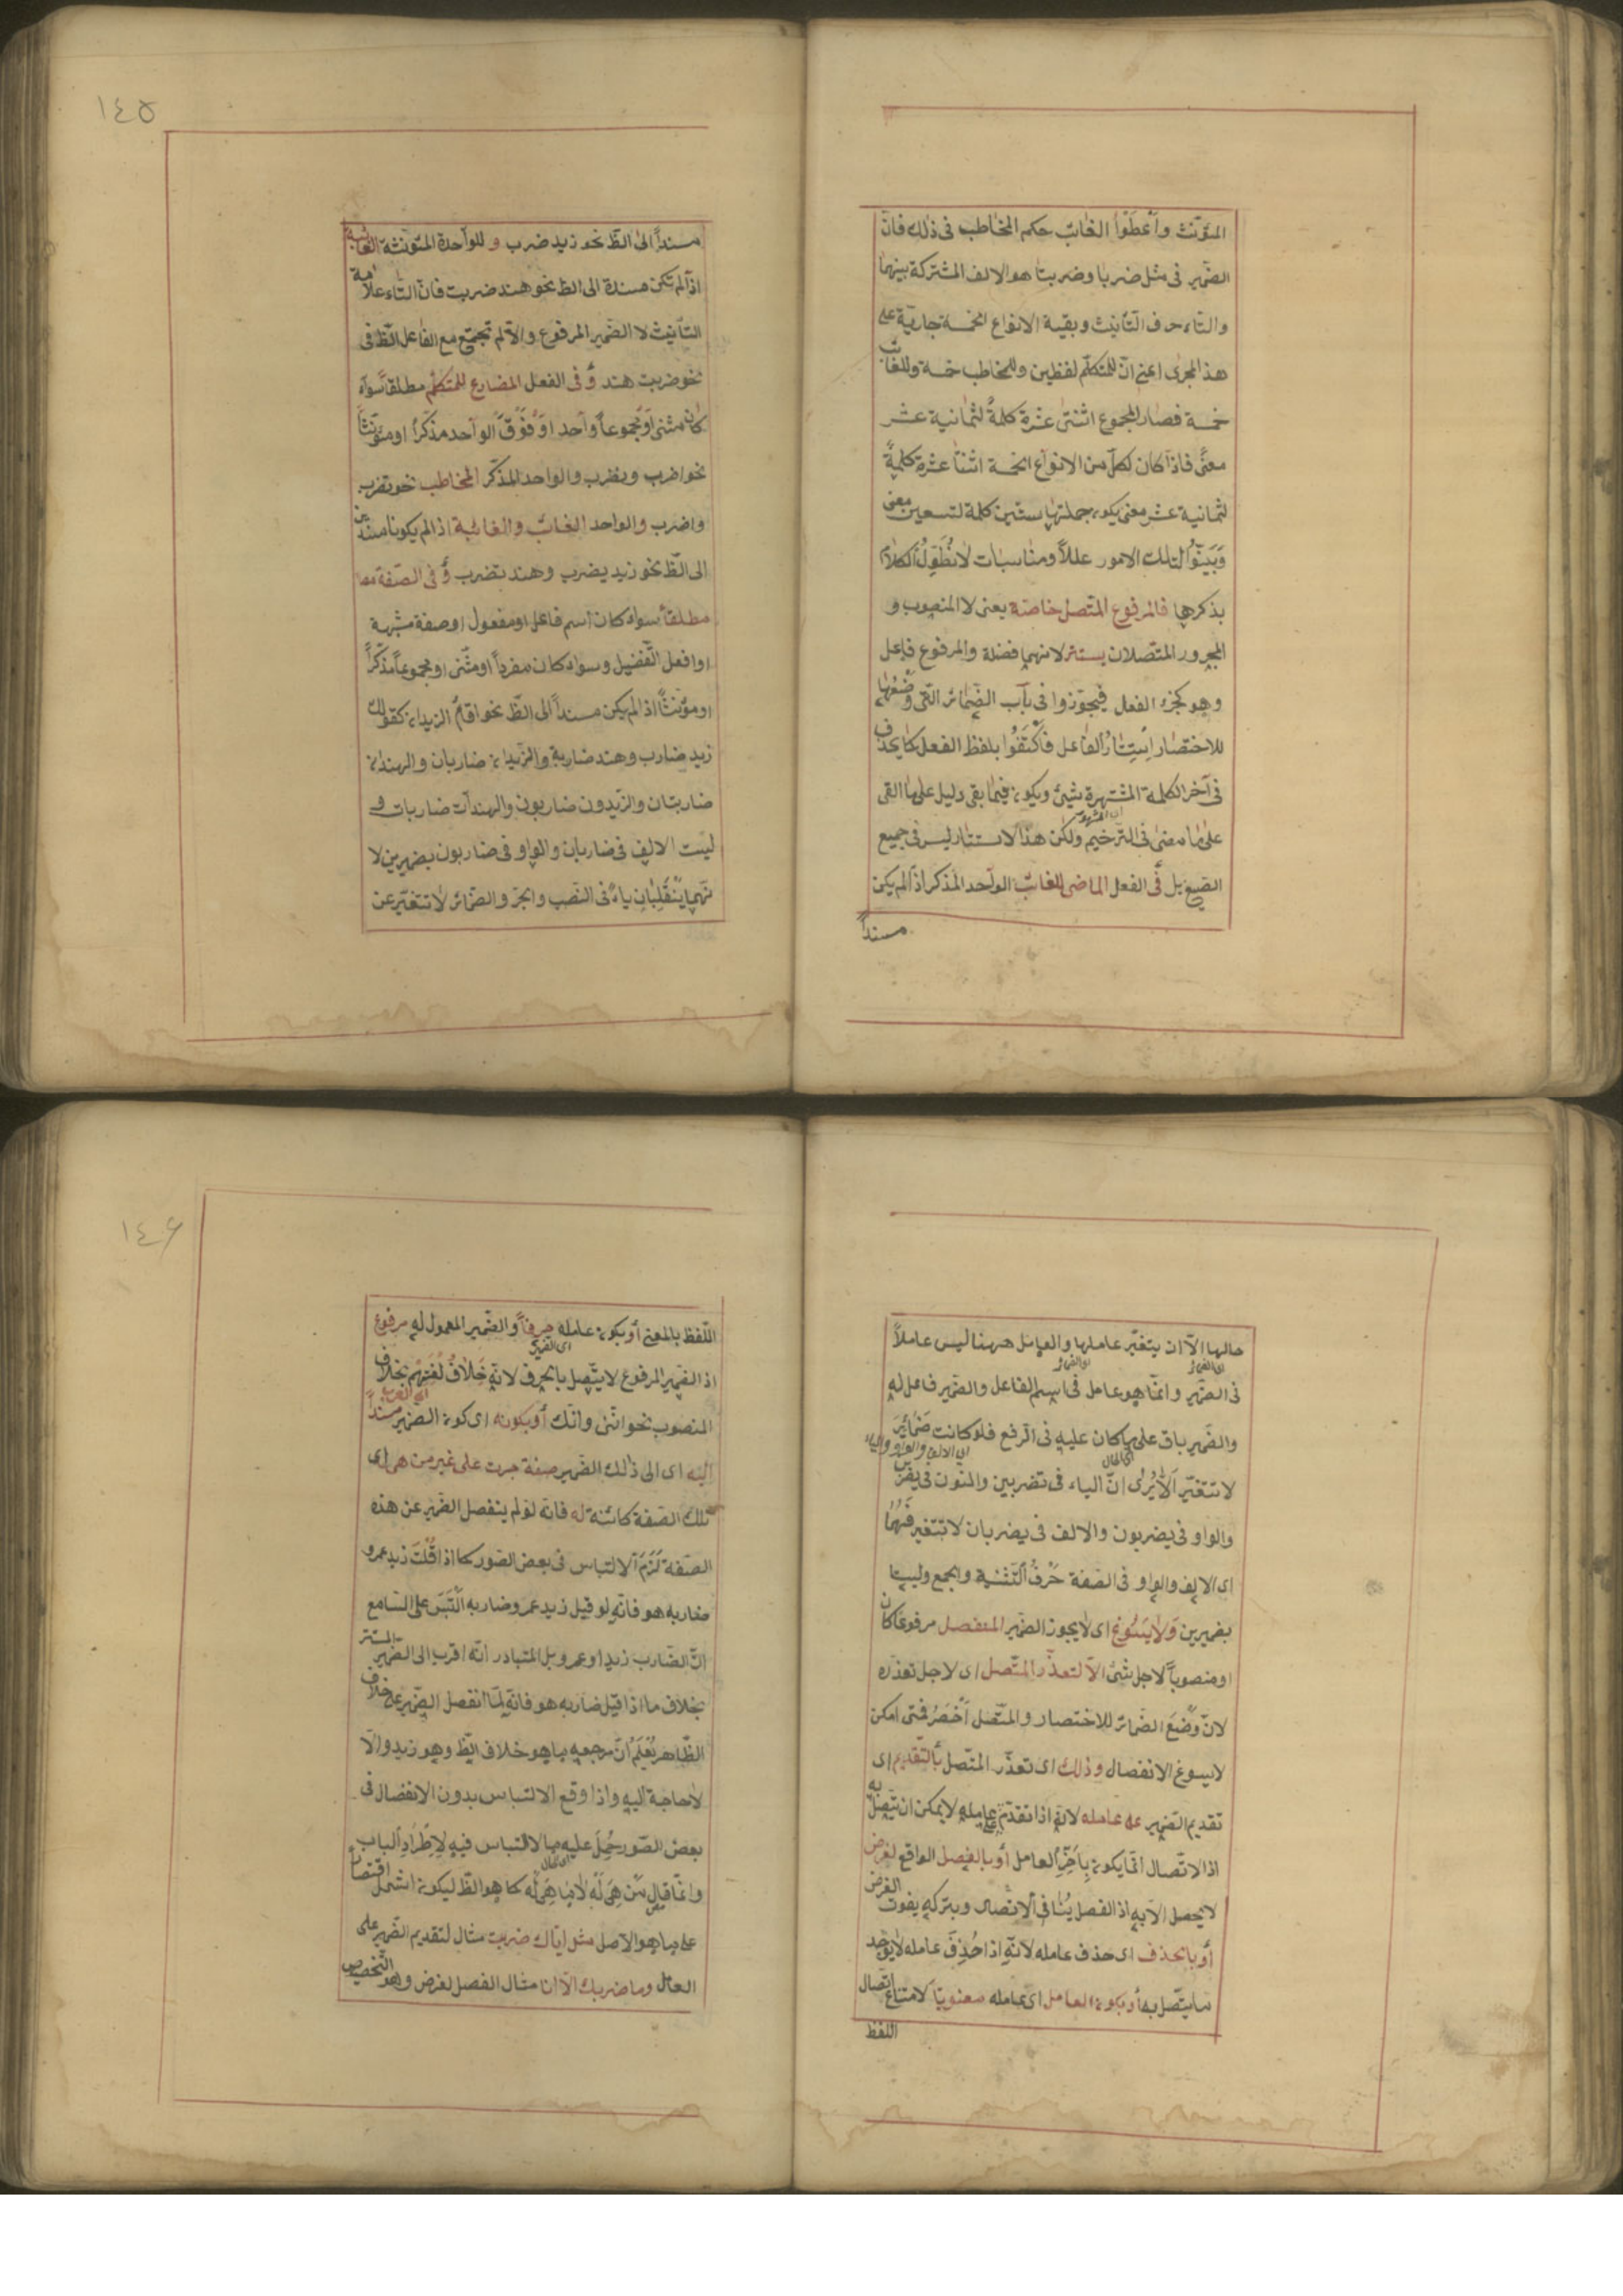 المؤنّث وأعطَوُا الغائب حكم المخاطب فى ذلك فانّ
الضمير فى مثل ضربا وضربتا هو الالف المشتركة بينهما
والتاء حرف التأنيث وبقية الانواع الخمسة جارية على
هذ المجرى اعنى انّ للمتكلّم لفظين وللمخاطب خمسة وللغائب
خمسة فصار المجموع اثنتى عشرة كلمةً لثمانية عشر
معنًى فاذا كان لكلّ من الانواع الخمسة اثنتا عشرة كلمةً
لثمانية عشر معنى يكون جملتها ستّين كلمة لتسعين معنى
وَبَيَّنُوا لتلك الامور عللاً ومناسبات لا نُطَوِّلُ الكلام
بذكرها فالمرفوع المتّصل خاصّة يعنى لا المنصوب و
المجرور المتّصلان يستتر لانهما فضلة والمرفوع فاعل
وهو كجزء الفعل فجوّزوا فى باب الضمائر الّتى وَضْعُهَا
للاختصار اِسْتِتَارُ الفاعل فَاكْتَفَوْا بلفظ الفعل كما يحذف
فى آخر الكلمة المشتهرة شيئ ويكون فيما بقى دليل على ما القى
على ما مضى فى الترخيم ولكن هذا الاستتار ليس فى جميع
الصيغ بل فى الفعل الماضى للغائب الواحد المذكر اذا لم يكن
مسنداً
١٤٥
مسنداً الى الظّ نحو زيد ضرب و للواحدة المؤنّثة الغائبة
اذا لم تكن مسندة الى الظ نحو هند ضربت فانّ التاء علامة
التأنيث لا الضمير المرفوع والّا لم تجتمع مع الفاعل الظّ فى
نحو ضربت هند وَ فى الفعل المضارع للمتكلّم مطلقاً سواء
كان مثنى اَوْ مجموعاً واحد اَوْ فَوْقَ الواحد مذكّراً او مؤنّثاً
نحو اضرب ونضرب والواحد المذكّر المخاطب نحو تضرب
واضرب والواحد الغائب والغائبة اذا لم يكونا مسندين
الى الظّ نحو زيد يضرب وهند تضرب وَ فى الصّفة
مطلقاً سواء كان اسم فاعل او مفعول او صفة مشبهة
او افعل التّفضيل وسواء كان مفرداً او مثنّى او مجموعاً مذكّراً
او مؤنّثاً اذا لم يكن مسنداً الى الظّ نحو اقائم الزيدان كقولك
زيد ضارب وهند ضاربة والزيدان ضاربان والهندان
ضاربتان والزيدون ضاربون والهندات ضاربات و
ليست الالف فى ضاربان والواو فى ضاربون بضميرين لا
نّهما يَنْقَلِبَانِ ياءً فى النّصب والجرّ والضمائر لا تتغيّر عن
حالها الاّ ان يتغيّر عاملها والعامل ههنا ليس عاملاً
فى الضمير وانّما هو عامل فى اسم الفاعل والضمير فاعل له
والضمير باق على ما كان عليه فى الرفع فلو كانت ضَمَائِرَ
اى الالف والواو والياء
لا تتغيّر اَلاَ يُرى انّ الياء فى تضربين والنون فى يضربن
والواو فى يضربون والالف فى يضربان لا تتغير فَهُمَا
اى الالف والواو فى الصّفة حَرْفُ التّثنية والجمع وليسا
بضميرين وَلا يَسُوغُ اى لا يجوز الضمير المنفصل مرفوعا كان
او منصوباً لاجل شئ الّا لتعذّر المتّصل اى لاجل تعذّره
لانّ وَضْعَ الضمائر للاختصار والمتّصل اَخْصَرُ فمتى امكن
لا يسوغ الانفصال وذلك اى تعذّر المتّصل بالتّقديم اى
تقديم الضمير على عامله لانّه اذا تقدّم على عامله لا يمكن ان يتّصل به
اذ الاتّصال انّما يكون بِآخِرِ العامل أَو بالفصل الواقع لغرض
لا يحصل الاّ به اذ الفصل يُنَافى الاتّصال وبتركه يفوت الغرض
أَو بالحذف اى حذف عامله لانّه اذا حُذِفَ عامله لا يوجد
ما يتّصل به أو بكون العامل اى عامله معنويّاً لامتناع اتّصال
اللفظ
١٤٦
اللّفظ بالمعنى أو بكون عامله حرفاً والضمير المعمول له مرفوع
اى الضمير
اذ الضمير المرفوع لا يتّصل بالحرف لانّه خِلَافُ لُغَتِهِمْ بخلاف
المنصوب نحو انّنى وانّك أو بكونه اى كون الضمير مسنداً
اليه اى الى ذلك الضمير صفة جرت على غير من هى اى
تلك الصّفة كائنة له فانّه لو لم ينفصل الضمير عن هذه
الصّفة لَزِمَ الالتباس فى بعض الصّور كما اذا قُلْتَ زيد عمرو
ضاربه هو فانّه لو قيل زيد عمرو ضاربه اَلْتَبَسَ على السّامع
انّ الضّارب زيد او عمرو بل المتبادر انّه اقرب الى الضمير المستتر
بخلاف ما اذا قيل ضاربه هو فانّه لمّا انفصل الضّمير على خلاف
الظّاهر يُعْلَمُ انّ مرجعه ما هو خلاف الظّ وهو زيد والّا
لا حاجة اليه واذا وقع الالتباس بدون الانفصال فى
بعض الصّور حُمِلَ عليه ما لا التباس فيه لِاطِّرَادِ الباب
وانّما قال مَنْ هِىَ لَهُ لا مَا هِىَ لَه كما هو الظّ ليكون اشمل اقتصاراً
على ما هو الاصل مثل ايّاك ضربت مثال لتقديم الضّمير على
العامل وما ضربك الّا انا مثال الفصل لغرض وهو التّخصيص